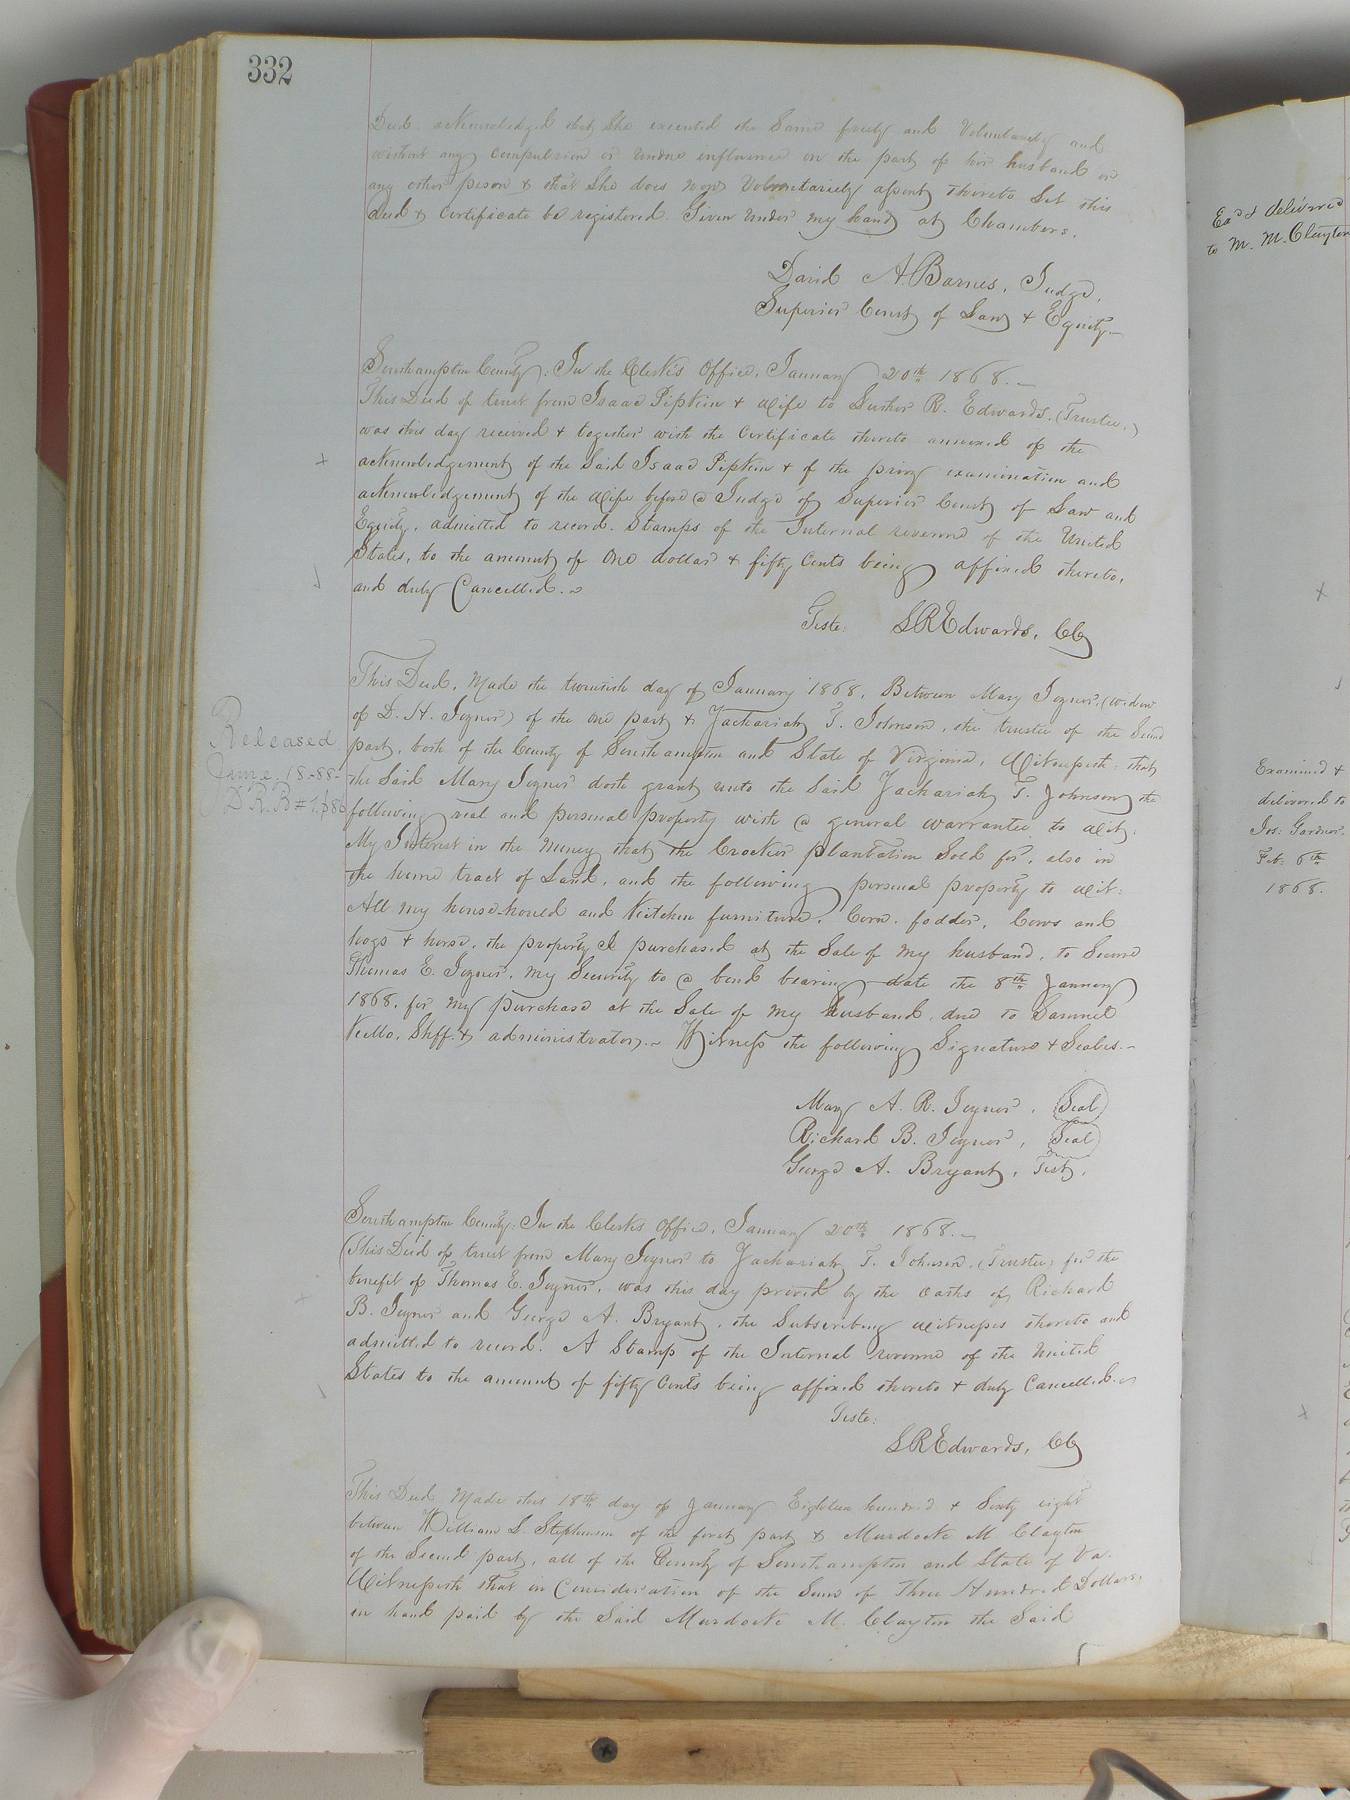 332
Deed acknowledged that she executed the same freely and Voluntarily and
without any compulsion or undue influence on the part of her husband or
any other person & that she does now Voluntariely assent thereto Let this
deed & certificate be registered. Given under my hand at Chambers.
David A. Barnes, Judge,
Superior Court of Law & Equity
Southampton County: In the Clerk's Office, January 20th 1868.
This Deed of trust from Isaac Pipkin & Wife to Luther R. Edwards, (Trustee,)
was this day received & together with the certificate thereto annexed of the
acknowledgement of the said Isaac Pipkin & of the privy examination and
acknowledgement of the Wife before a Judge of Superior Court of Law and
Equity, admitted to record. Stamps of the Internal revenue of the United
States, to the amount of one dollar & fifty cents being affixed thereto,
and duly Cancelled.
Teste: LREdwards, CC
This Deed, Made the twentieth day of January 1868, Between Mary Joyner, (widow
of D. H. Joyner) of the one part & Zachariah T. Johnson, the trustee of the Second
part, both of the County of Southampton and State of Virginia, Witnesseth: that
the said Mary Joyner doth grant unto the said Zachariah T. Johnson the
following real and personal property with a general warrantee to wit:
My Interest in the money that the Crocker plantation Sold for, also in
the home tract of Land, and the following personal property to wit:
All my house-hould and Kitchen furniture, Corn, fodder, Cows and
hogs & horse, the property I purchased at the Sale of my husband, to Secure
Thomas E. Joyner, my Security to a bond bearing date the 8th January
1868, for my purchase at the Sale of my husband, due to Samuel
Kello, Shff. & administrator. Witness the following Signature & Seales.
Mary A. R. Joyner, Seal
Richard B. Joyner, Seal
George A. Bryant, Test,
Southampton County: In the Clerk's Office, January 20th 1868.
This Deed of trust from Mary Joyner to Zachariah T. Johnson, (Trustee) for the
benefit of Thomas E. Joyner, was this day proved by the oaths of Richard
B. Joyner and George A. Bryant, the Subscribing witnesses thereto and
admitted to record. A Stamp of the Internal revenue of the United
States to the amount of fifty cents being affixed thereto & duly Cancelled.
Teste:
LREdwards, CC
This Deed Made this 18th day of January Eighteen hundred & Sixty eight
between William S. Stephenson of the first part & Murdock M. Clayton
of the Second part, all of the County of Southampton and State of Va.
Witnesseth that in Consideration of the Sum of Three Hundred Dollars,
in hand paid by the Said Murdock M. Clayton the Said
Released
June 18-88-
D.R.B #1, p86
Exd & delivered
to M. M. Clayton
Examined &
delivered to
Jos: Gardner.
Feb: 6th
1868.